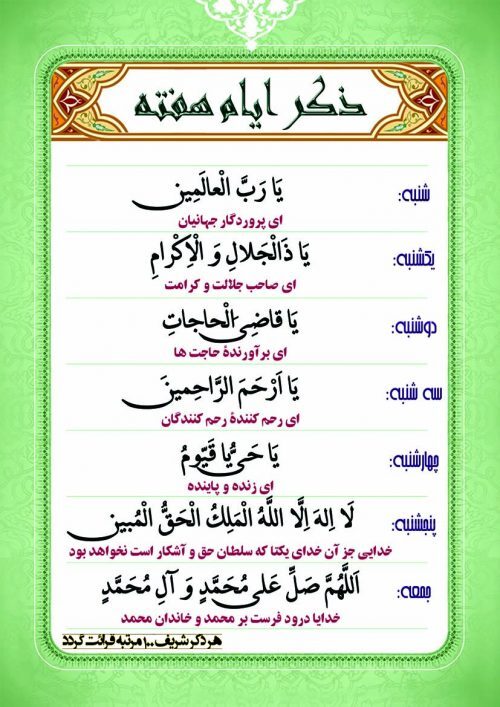 ذکر ایام هفته
شنبه: یَا رَبَّ الْعالَمِین
ای پروردگار جهانیان
یکشنبه: یَا ذَالْجَلالِ وَ الْاِکْرامِ
ای صاحب جلالت و کرامت
دوشنبه: یَا قاضِیَ الْحاجاتِ
ای برآورندهٔ حاجت ها
سه شنبه: یَا اَرْحَمَ الرَّاحِمِینَ
ای رحم کنندهٔ رحم کنندگان
چهارشنبه: یَا حَیُّ یا قَیّومُ
ای زنده و پاینده
پنجشنبه: لَا اِلهَ اِلَّا اللَّهُ الْمَلِکُ الْحَقُّ الْمُبین
خدایی جز آن خدای یکتا که سلطان حق و آشکار است نخواهد بود
جمعه: اَللَّهُمَّ صَلِّ عَلی مُحَمَّدٍ وَ آلِ مُحَمَّدٍ
خدایا درود فرست بر محمد و خاندان محمد
هر ذکر شریف ۱۰۰ مرتبه قرائت گردد